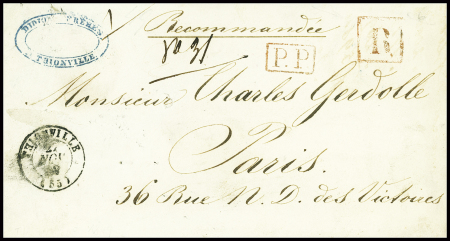 DIDION FRÈRES
THIONVILLE
Recommandée
No 31
P.P.
R
Monsieur Charles Gerdolle
Paris.
36 Rue N. D. des Victoires
THIONVILLE
27
NOV
(55)